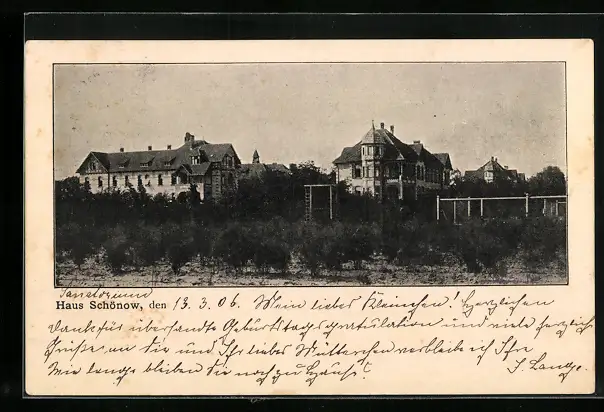 Sanatorium
Haus Schönow, den 13. 3. 06. Mein liebes Kleinchen! Herzlichen
Dank für übersandte Geburtstagsgratulation und viele herzlich
Grüße, an Sie und Ihr liebes Mutterchen verbleibe ich Ihr
Wie lange bleiben Sie noch zu Hause? J. Lange.